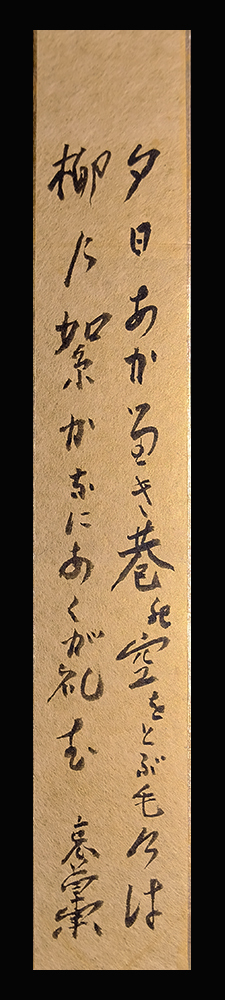 夕日あかるき巷の空をとぶものは
柳の絮かなにあくがれむ
哀草果